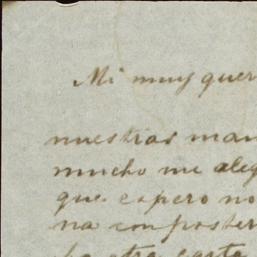 Mi muy quer
nuestras man
mucho me aleg
que espero no
na con poster
la otra carta